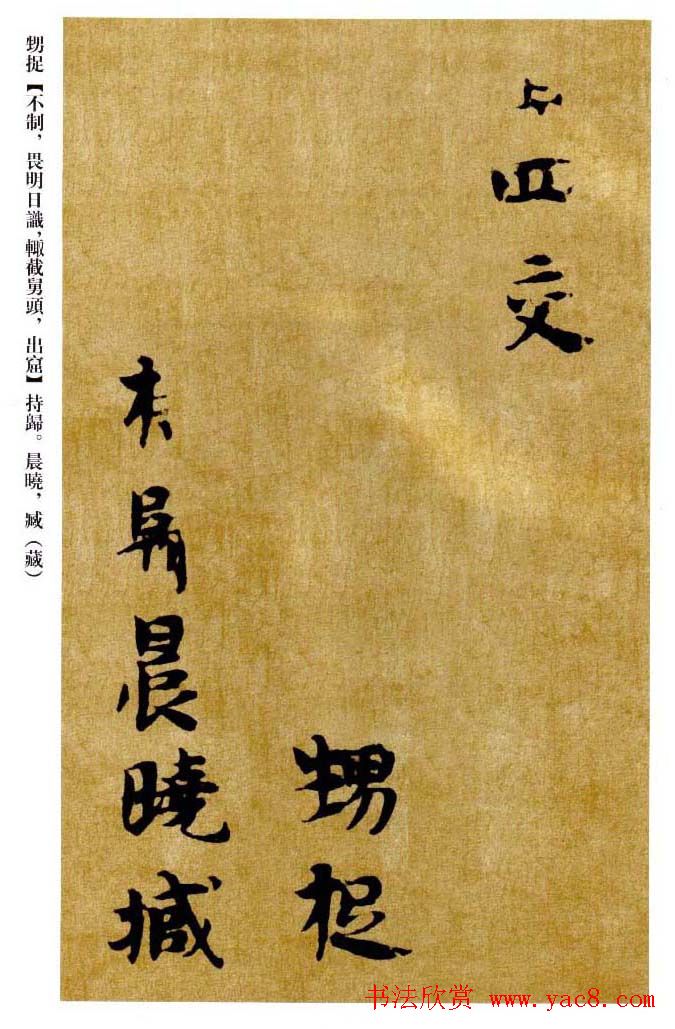 交
甥捉
持歸晨曉臧
甥捉【不制，畏明日識，輙截舅頭，出窟】持歸。晨曉，臧（藏）
书法欣赏 www.yac8.com